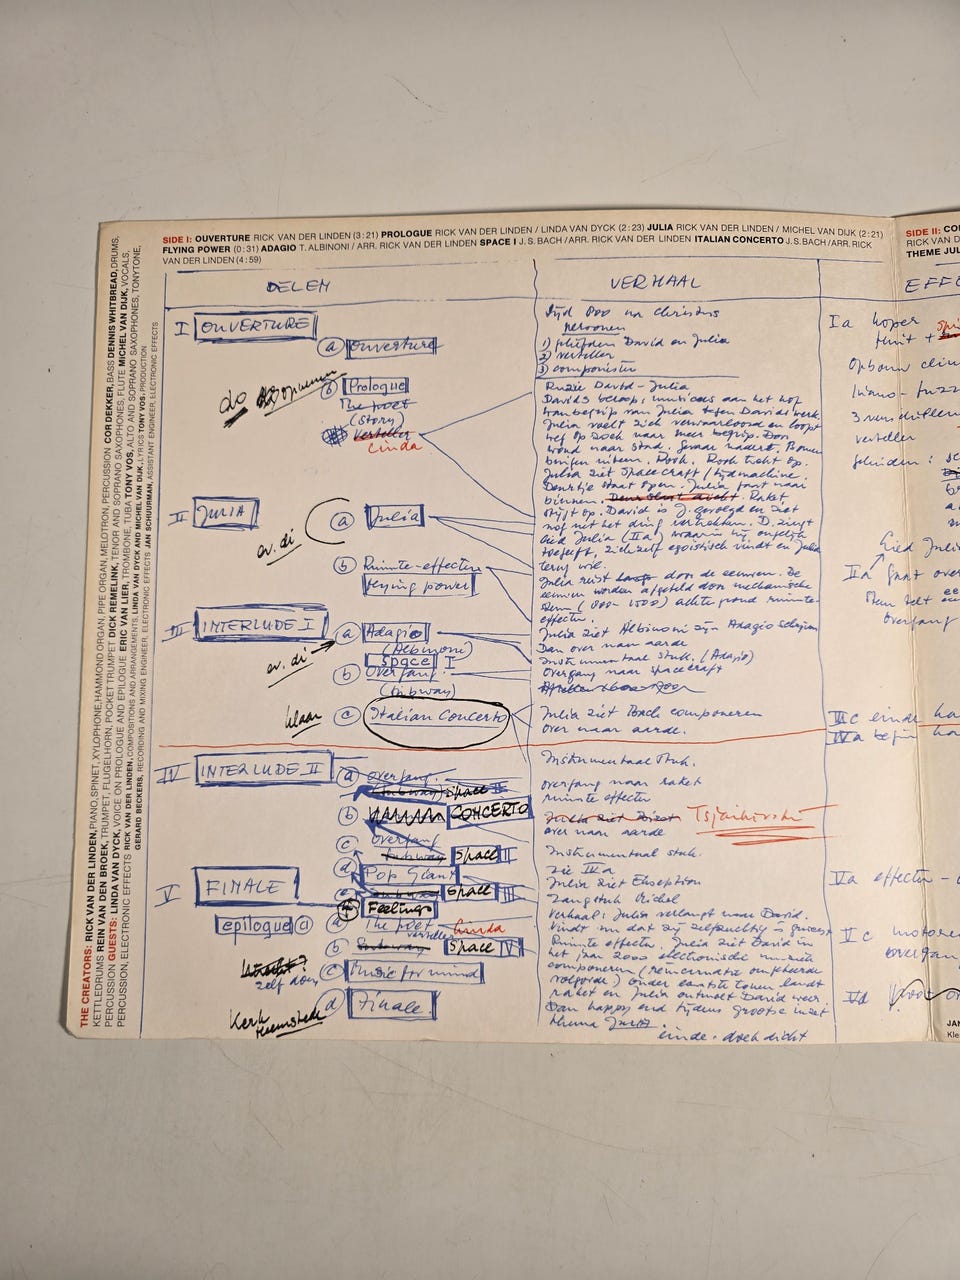 SIDE I: OUVERTURE RICK VAN DER LINDEN (3:21) PROLOGUE RICK VAN DER LINDEN / LINDA VAN DYCK (2:23) JULIA RICK VAN DER LINDEN / MICHEL VAN DIJK (2:21)
FLYING POWER (0:31) ADAGIO T. ALBINONI / ARR. RICK VAN DER LINDEN SPACE I J.S. BACH / ARR. RICK VAN DER LINDEN ITALIAN CONCERTO J.S. BACH / ARR. RICK
VAN DER LINDEN (4:59)
SIDE II: CO
RICK VAN D
THEME JUL
THE CREATORS: RICK VAN DER LINDEN, PIANO, SPINET, XYLOPHONE, HAMMOND ORGAN, PIPE ORGAN, MELOTRON, PERCUSSION COR DEKKER, BASS DENNIS WHITBREAD, DRUMS,
KETTLEDRUMS REIN VAN DEN BROEK, TRUMPET, FLUGELHORN, POCKET TRUMPET DICK REMELINK, TENOR AND SOPRANO SAXOPHONES, FLUTE MICHEL VAN DIJK, VOCALS,
PERCUSSION GUESTS: LINDA VAN DYCK, VOICE ON PROLOGUE AND EPILOGUE ERIC VAN LIER, TROMBONE, TUBA TONY VOS, ALTO AND SOPRANO SAXOPHONES, TONYTONE,
PERCUSSION, ELECTRONIC EFFECTS RICK VAN DER LINDEN, COMPOSITIONS AND ARRANGEMENTS, LINDA VAN DYCK AND MICHEL VAN DIJK, LYRICS TONY VOS, PRODUCTION
GERARD BECKERS, RECORDING AND MIXING ENGINEER, ELECTRONIC EFFECTS JAN SCHUURMAN, ASSISTANT ENGINEER, ELECTRONIC EFFECTS
DELEN
I OUVERTURE
a ouverture
b Prologue
The poet
(Story)
Verteller
Linda
II JULIA
a Julia
ev. di
b Ruimte-effecten
flying power
III INTERLUDE I
a Adagio
(Albinoni)
ev. di
Space I
b Overgang
(Subway)
klaar
c Italian Concerto
IV INTERLUDE II
a overgang
(Subway) Space II
b CONCERTO
c overgang
Subway Space II
d Pop Giant
e Subway Space III
f Feelings
V FINALE
epilogue a
a The poet Linda
verteller
b Subway Space IV
zelf doen
c Music for mind
Kerk
Heemstede
d Finale.
VERHAAL
Tijd 1000 na christus
personen
1) geliefden David en Julia
2) verteller
3) componisten
Ruzie David - Julia
Davids beroep: musicus aan het hof
wanbegrip van Julia tegen Davids werk.
Julia voelt zich verwaarloosd en loopt
weg op zoek naar meer begrip. Door
woud naar stad. Gevaar nadert. Bomen
buigen uiteen. Rook. Rook trekt op.
Julia ziet Spacecraft / tijdmachine.
Deurtje staat open. Julia gaat naar
binnen. Deur slaat dicht. Raket
stijgt op. David is J. gevolgd en ziet
nog net het ding vertrekken. D. zingt
lied Julia (IIa) waarin hij ongelijk
toegeeft, zichzelf egoistisch vindt en Julia
terug wil.
Julia reist door de eeuwen. De
eeuwen worden afgeteld door mechanische
stem (1000-1700) achtergrond ruimte-
effecten.
Julia ziet Albinoni zijn Adagio schrijven
Dan over naar aarde
Instrumentaal stuk. (Adagio)
Overgang naar spacecraft
Julia ziet Bach componeren
over naar aarde.
Instrumentaal stuk.
overgang naar raket
ruimte effecten
Julia ziet Bizet Tsjaikovski
over naar aarde
Instrumentaal stuk.
Zie IVa
Julia ziet Ekseption
Zangstuk Michel
Verhaal: Julia verlangt naar David.
Vindt nu dat zij zelfzuchtig is geweest
Ruimte effecten. Julia ziet David in
het jaar 2000 electronische muziek
componeren (reincarnatie omgekeerde
volgorde) onder laatste tonen landt
raket en Julia ontmoet David weer.
Dan happy end tijdens grootse inzet
thema JULIA.
einde. doek dicht
EFFE
Ia koper
fluit +
Opbouw clim
piano - fuzz
3 verschillen
verteller
geluiden:
Lied Julia
IIa gaat over
Stem telt
overgang
IIIc einde ha
IVa begin ha
Va effecten -
Vc motoren
overgan
Vd
JAN
Kle